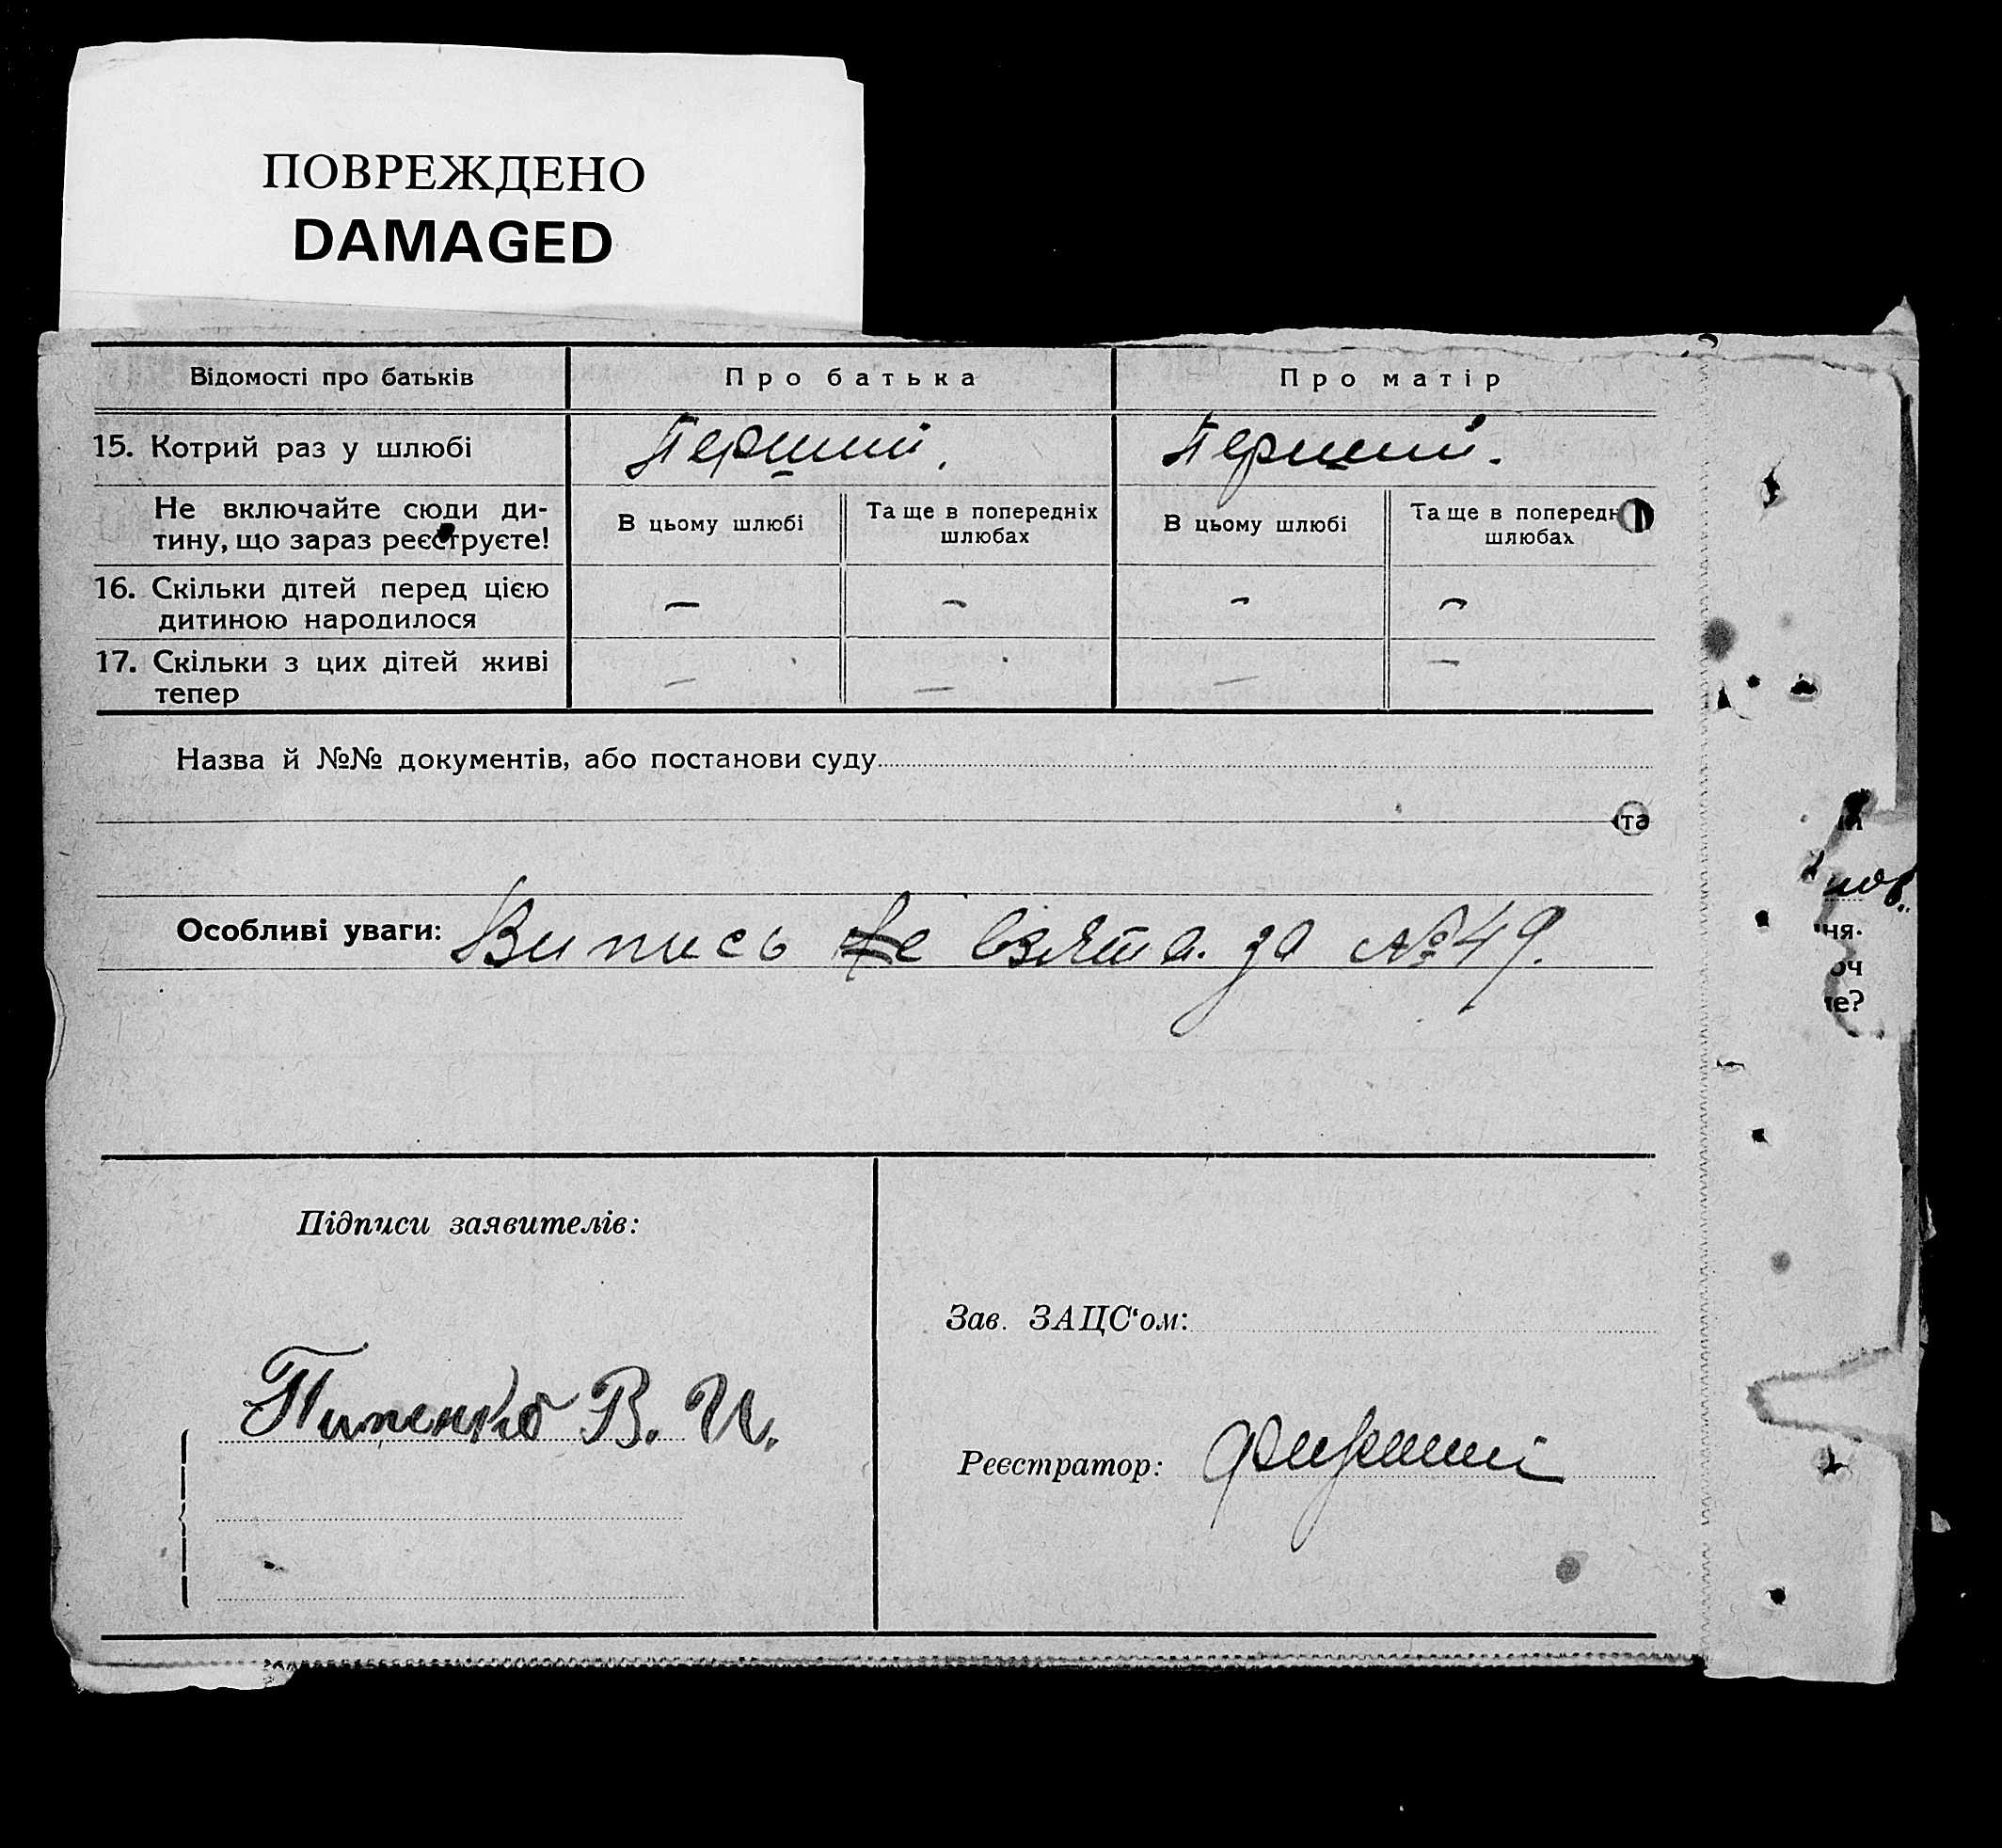 ПОВРЕЖДЕНО
DAMAGED
Відомості про батьків
Про батька
Про матір
15. Котрий раз у шлюбі
Перший.
Перший.
Не включайте сюди ди-
тину, що зараз реєструєте!
В цьому шлюбі
Та ще в попередніх
шлюбах
В цьому шлюбі
Та ще в попередн
шлюбах
16. Скільки дітей перед цією
дитиною народилося
— — — —
17. Скільки з цих дітей живі
тепер
— — — —
Назва й №№ документів, або постанови суду
та
нов.
Особливі уваги: Випись не взята. за №49.
ня.
оч
е?
Підписи заявителів:
Зав. ЗАЦС'ом:
Пипенко В. И.
Реєстратор: